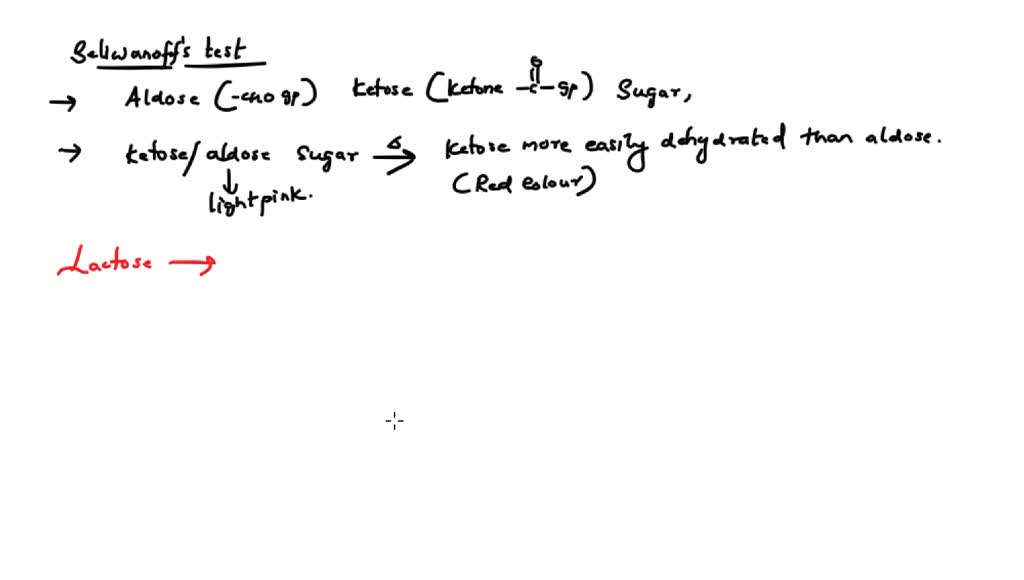 Seliwanoff's test
→ Aldose (-CHO gp) Ketose (Ketone -C-gp) Sugar,
O
→ Ketose/aldose Sugar → Ketose more easily dehydrated than aldose.
Δ
↓ (Red colour)
light pink.
Lactose →